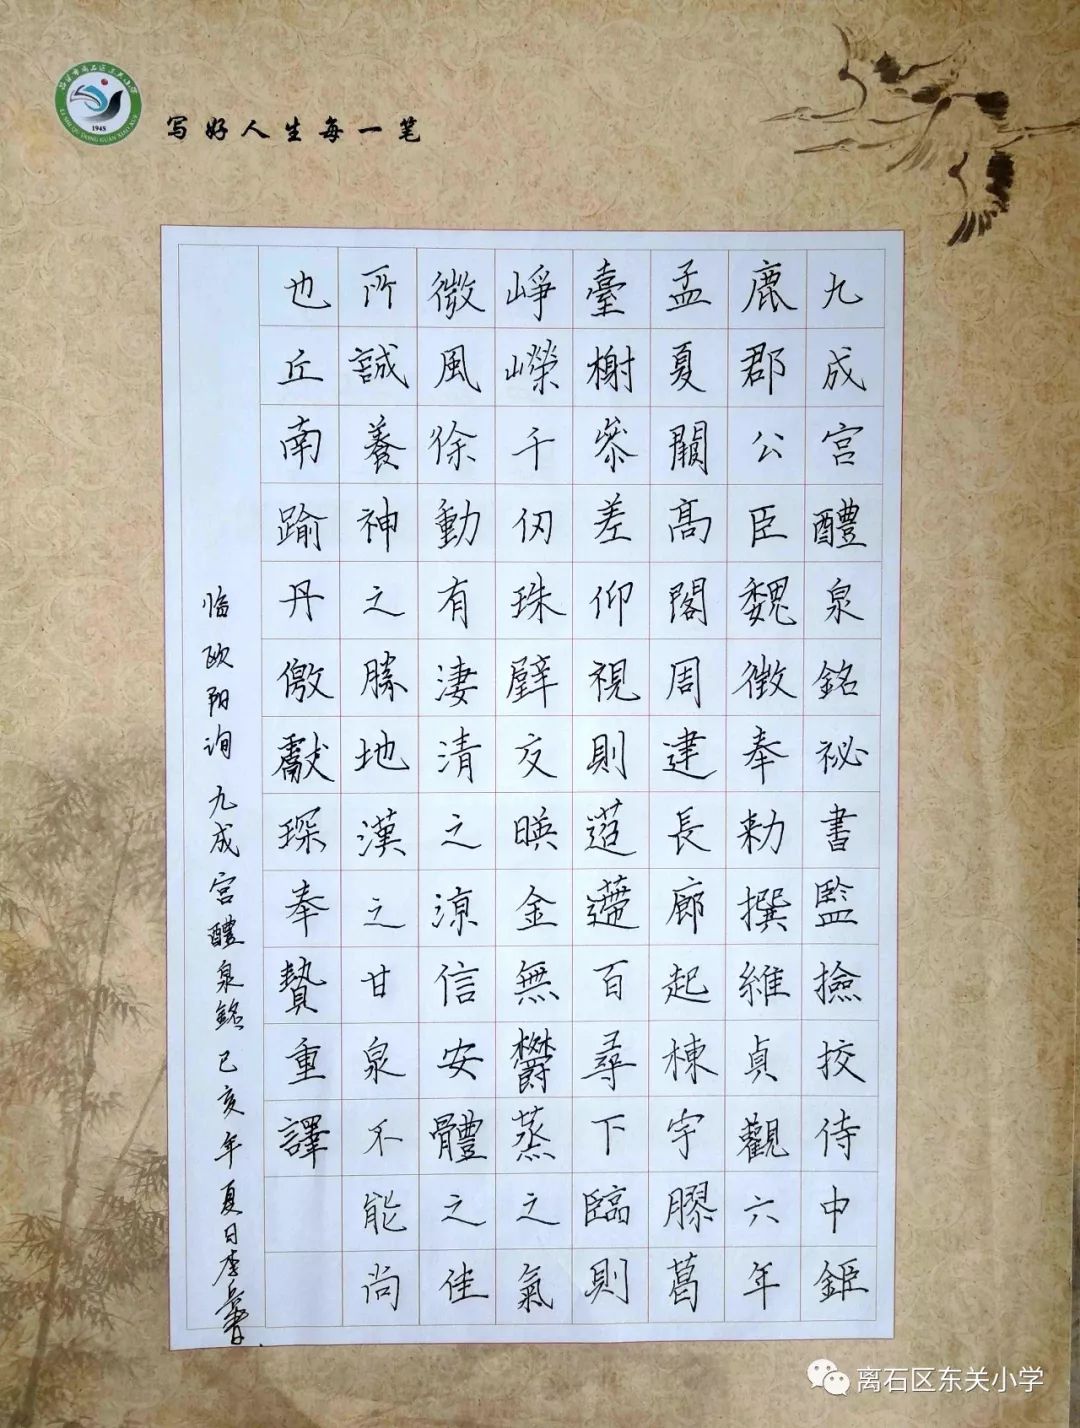 写好人生每一笔
1945
九成宫醴泉銘祕書監撿挍侍中鉅
鹿郡公臣魏徵奉勑撰維貞觀六年
孟夏關高閣周建長廊起棟宇膠葛
臺榭參差仰視則迢遰百尋下臨則
崢嶸千仞珠壁交暎金無欝蒸之氣
微風徐動有淒清之凉信安體之佳
所誠養神之勝地漢之甘泉不能尚
也丘南踰丹儌獻琛奉贄重譯
临欧阳询九成宫醴泉銘己亥年夏日李
离石区东关小学